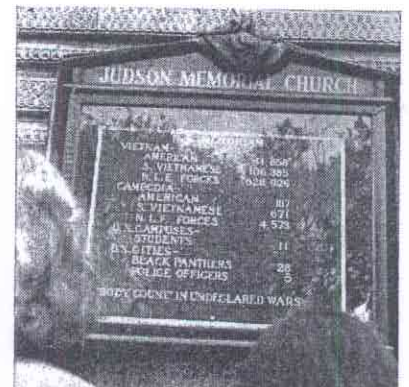 JUDSON MEMORIAL CHURCH
VIETNAM-
AMERICAN
S. VIETNAMESE 106,385
N. L. F. FORCES
CAMBODIA-
AMERICAN 167
S. VIETNAMESE 671
N. L. F. FORCES 4,573
U.S. CAMPUSES-
STUDENTS 11
U.S. CITIES-
BLACK PANTHERS 28
POLICE OFFICERS 5
"BODY COUNT" IN UNDECLARED WARS